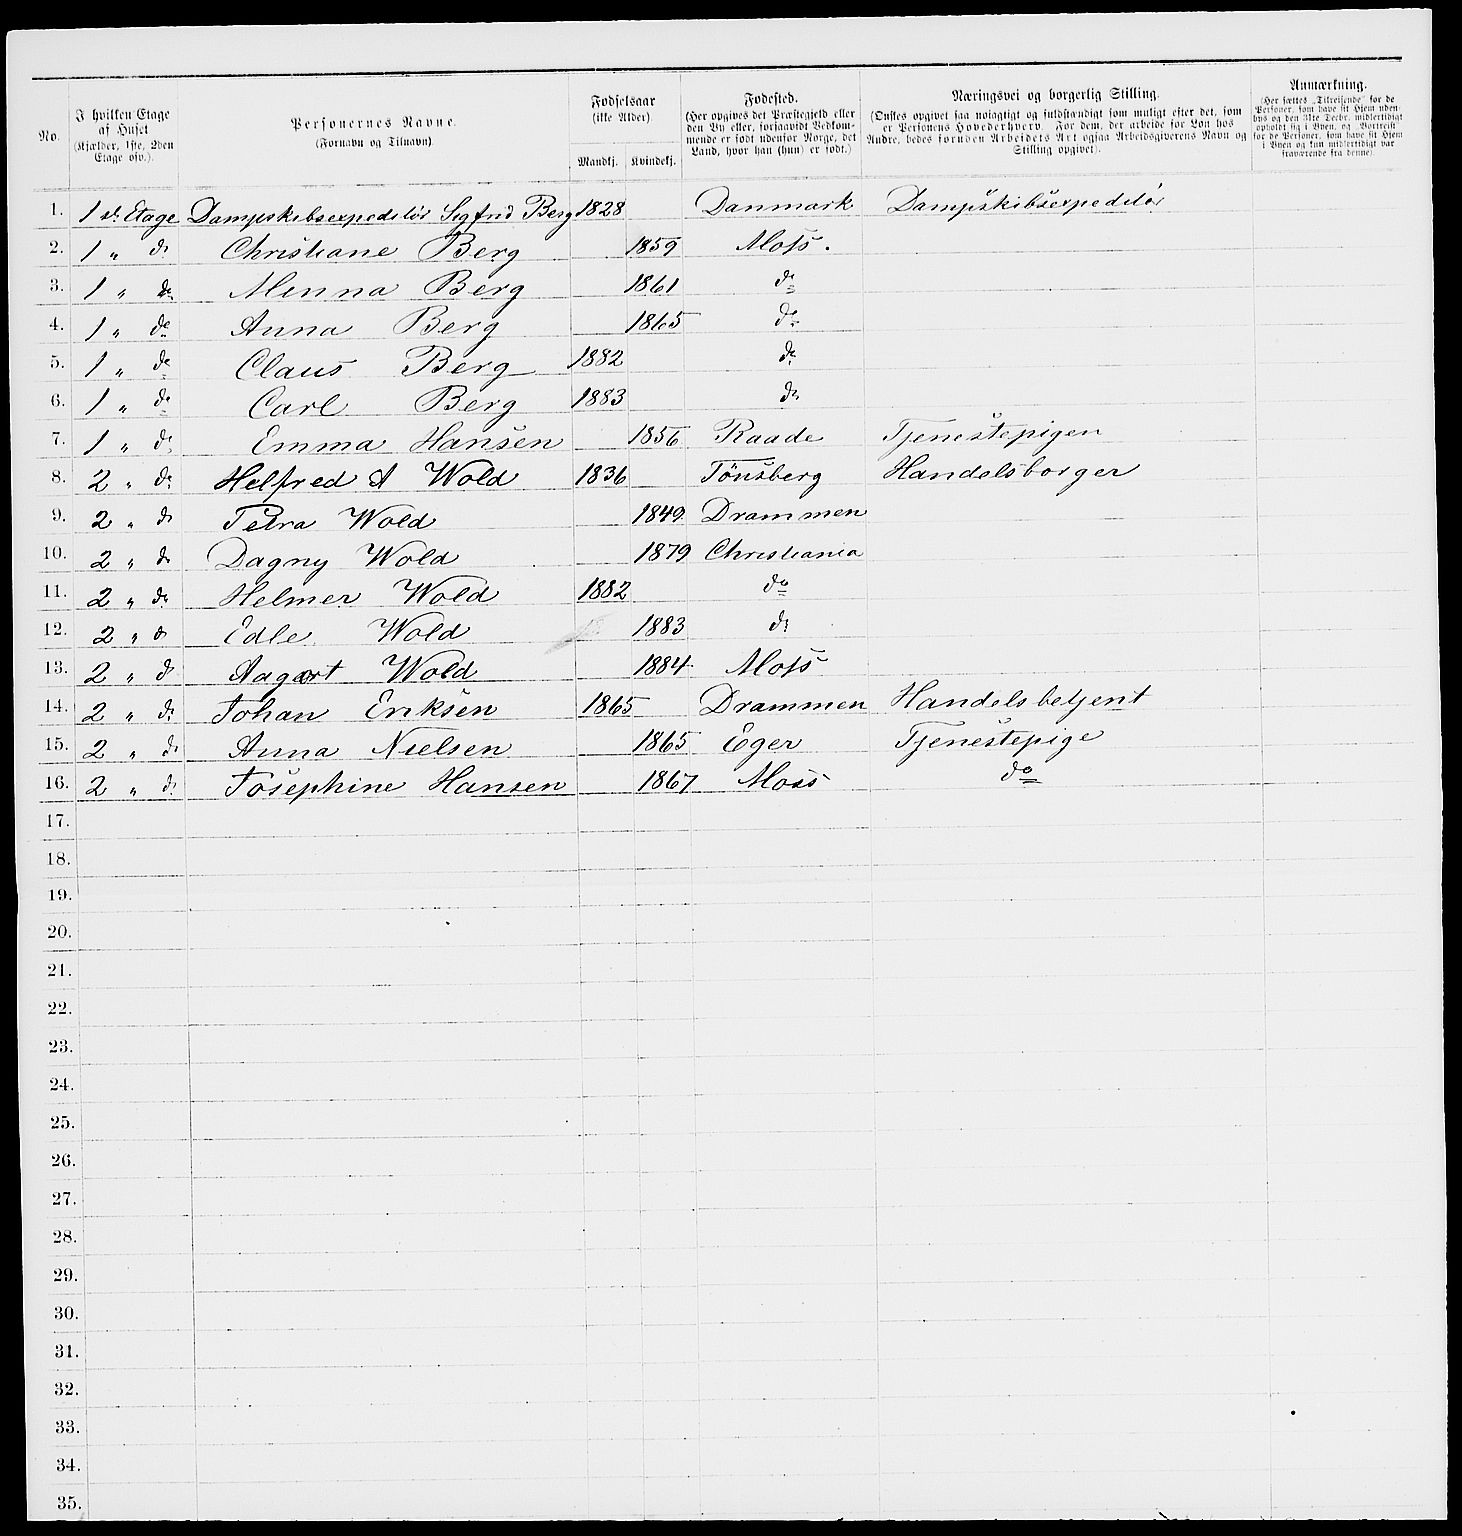 No.
I hvilken Etage af Huset (Kjælder, 1ste, 2den Etage osv.).
Personernes Navne. (Fornavn og Tilnavn).
Fødselsaar (ikke Alder)
Mandkj. Kvindekj.
Fødested. (Her opgives det Præstegjeld eller den By eller, forsaavidt Vedkommende er født udenfor Norge, det Land, hvor han (hun) er født.)
Næringsvei og borgerlig Stilling. (Ønskes opgivet saa nøiagtigt og fuldstændigt som muligt efter det, som er Personens Hovederhverv. For dem, der arbeide for Løn hos Andre, bedes foruden Arbeidets Art ogsaa Arbeidsgiverens Navn og Stilling opgivet).
Anmærkning. (Her sættes „Tilreisende" for de Personer, som have sit Hjem udenbys og den 31te Decbr. midlertidigt opholdt sig i Byen, og „Bortreist" for de Personer, som have sit Hjem i Byen og kun midlertidigt var fraværende fra denne).
1. 1 st. Etage Dampskibsexpeditör Sigfrid Berg 1828 Danmark Dampskibsexpeditör
2. 1 " do Christiane Berg 1859 Moss.
3. 1 " do Minna Berg 1861 do
4. 1 " do Anna Berg 1865 do
5. 1 " do Claus Berg 1882 do
6. 1 " do Carl Berg 1883 do
7. 1 " do Emma Hansen 1856 Raade Tjenestepigen
8. 2 " do Helfred A Wold 1836 Tönsberg Handelsborger
9. 2 " do Petra Wold 1849 Drammen
10. 2 " do Dagny Wold 1879 Christiania
11. 2 " do Helmer Wold 1882 do
12. 2 " do Edle Wold 1883 do
13. 2 " do Aagot Wold 1884 Moss
14. 2 " do Johan Eriksen 1865 Drammen Handelsbetjent
15. 2 " do Anna Nielsen 1865 Eger Tjenestepige
16. 2 " do Josephine Hansen 1867 Moss do
17.
18.
19.
20.
21.
22.
23.
24.
25.
26.
27.
28.
29.
30.
31.
32.
33.
34.
35.